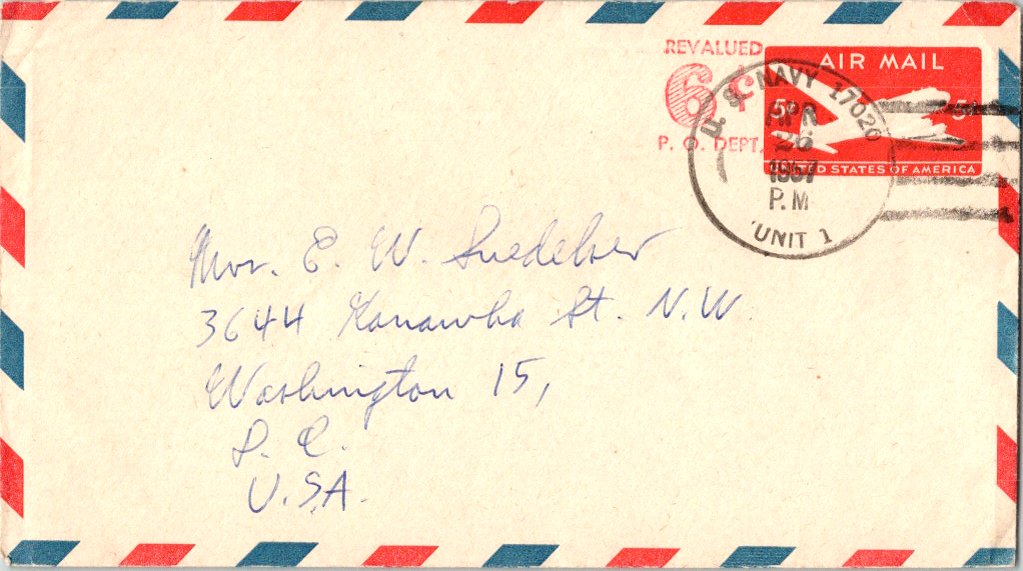 REVALUED
6¢
P. O. DEPT.
AIR MAIL
5¢ 5¢
UNITED STATES OF AMERICA
U. S. NAVY 17020
APR
26
1957
P.M
UNIT 1
E. W.
3644 Kanawha St. N.W.
Washington 15,
D. C.
U.S.A.